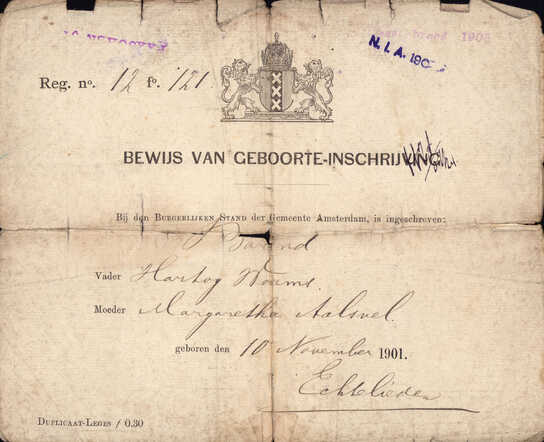 N.I.A. 190
1903
Reg. nº. 12 fº. 121
BEWIJS VAN GEBOORTE-INSCHRIJVING
Bij den BURGERLIJKEN STAND der Gemeente Amsterdam, is ingeschreven:
Barend
Vader Hartog Worms.
Moeder Margaretha Aalsvel.
geboren den 10 November 1901.
Echtelieden
DUPLICAAT-LEGES f 0.30